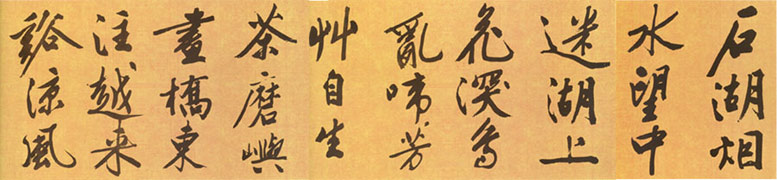 石湖烟
水望中
迷湖上
花深鳥
亂啼芳
艸自生
茶磨嶼
畫橋東
注越来
谿涼風